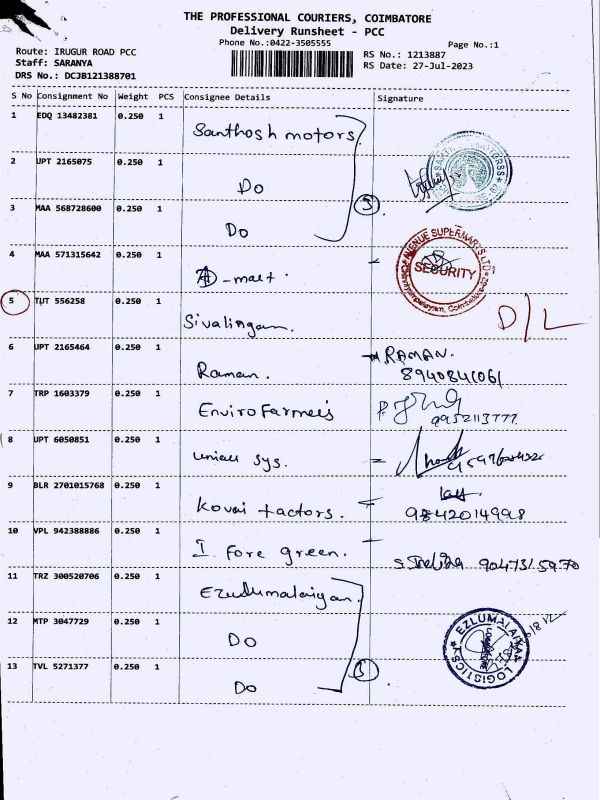 THE PROFESSIONAL COURIERS, COIMBATORE
Delivery Runsheet - PCC
Phone No.:0422-3505555
Page No.:1
Route: IRUGUR ROAD PCC
Staff: SARANYA
DRS No.: DCJB121388701
RS No.: 1213887
RS Date: 27-Jul-2023
S No Consignment No Weight PCS Consignee Details Signature
1 EDQ 13482381 0.250 1 Santhosh motors
2 UPT 2165075 0.250 1 Do
3 MAA 568728600 0.250 1 Do
3
4 MAA 571315642 0.250 1 D-mart.
AVENUE SUPERMARTS LTD
SECURITY
5 TUT 556258 0.250 1 Sivalingam. D/L
6 UPT 2165464 0.250 1 Raman. RAMAN.
8940841061
7 TRP 1603379 0.250 1 Envirofarmers
9952113777
8 UPT 6050851 0.250 1 sys.
9 BLR 2701015768 0.250 1 Kovai tactors.
9842014998
10 VPL 942388886 0.250 1 I fore green. 9047315970
11 TRZ 300520706 0.250 1 Ezhudumalaigan.
12 MTP 3047729 0.250 1 Do
13 TVL 5271377 0.250 1 Do
3
EZLUMALAIYAN
LOGISTICS